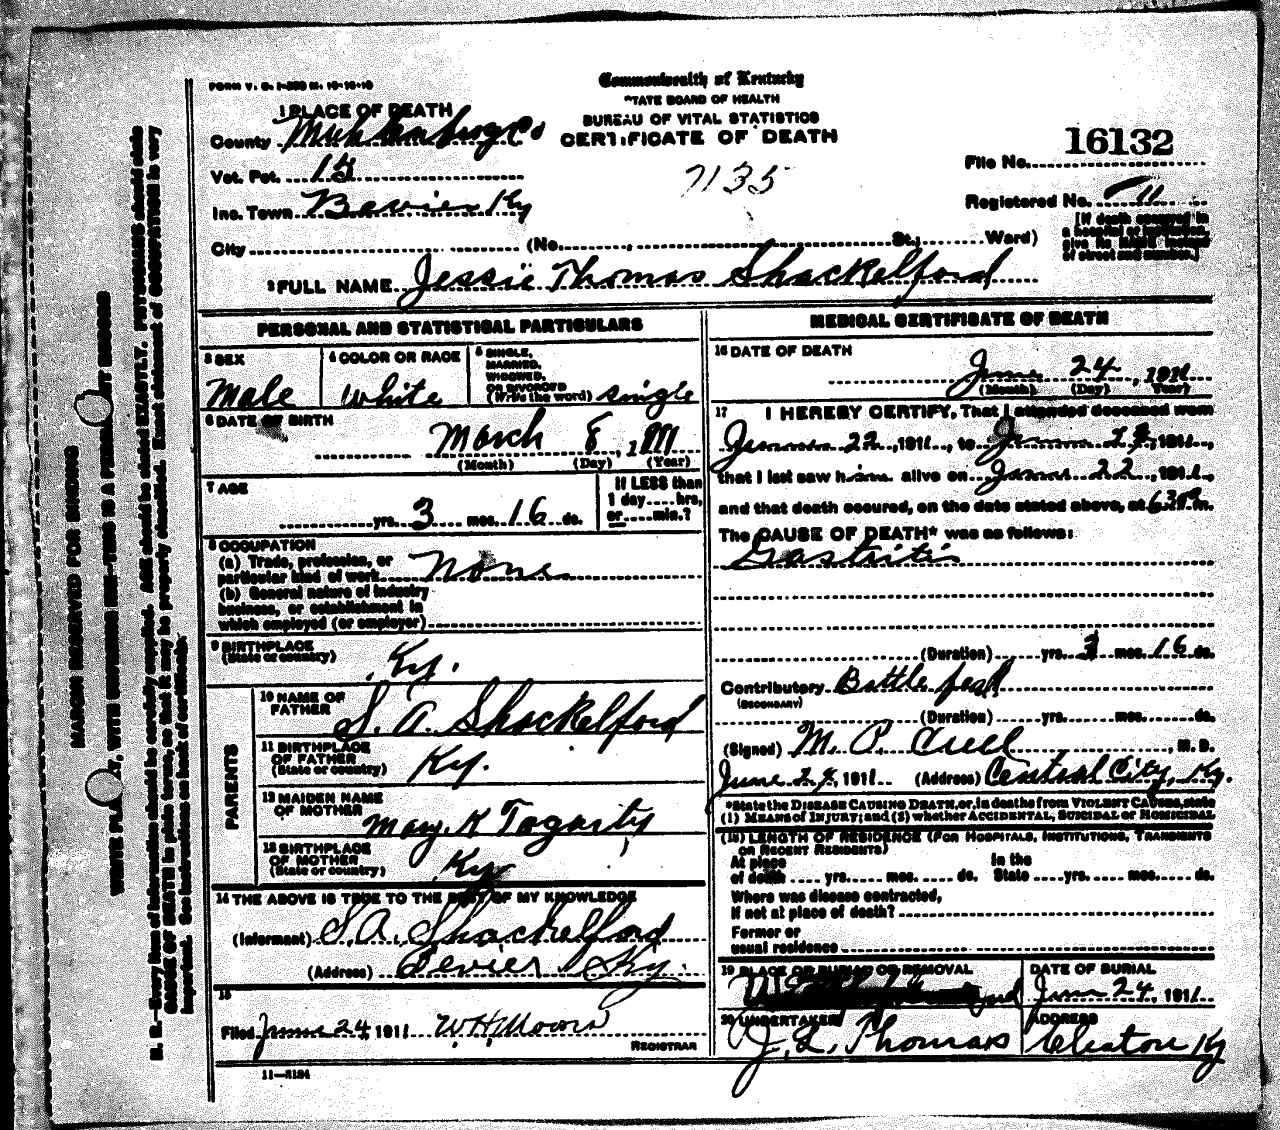 FORM V. S. 1-
Commonwealth of Kentucky
STATE BOARD OF HEALTH
BUREAU OF VITAL STATISTICS
CERTIFICATE OF DEATH
1 PLACE OF DEATH
County Muhlenburg Co
Vot. Pct. 15
Inc. Town Bevier Ky
City (No. , St.; Ward)
7135
File No. 16132
Registered No. 11
[If death occurred in a hospital or institution, give its NAME instead of street and number.]
2 FULL NAME Jessie Thomas Shackelford
PERSONAL AND STATISTICAL PARTICULARS
3 SEX
Male
4 COLOR OR RACE
White
5 SINGLE, MARRIED, WIDOWED, OR DIVORCED (Write the word) single
6 DATE OF BIRTH
March 8, 1911
(Month) (Day) (Year)
7 AGE
yrs. 3 mos. 16 ds.
If LESS than 1 day hrs. or min.?
8 OCCUPATION
(a) Trade, profession, or particular kind of work None
(b) General nature of industry business, or establishment in which employed (or employer)
9 BIRTHPLACE
(State or country) Ky.
PARENTS
10 NAME OF FATHER S. A. Shackelford
11 BIRTHPLACE OF FATHER (State or country) Ky.
12 MAIDEN NAME OF MOTHER Mary K Fogarty
13 BIRTHPLACE OF MOTHER (State or country) Ky
14 THE ABOVE IS TRUE TO THE BEST OF MY KNOWLEDGE
(Informant) S. A. Shackelford
(Address) Bevier Ky.
15
Filed June 24, 1911 W. H. Moore
REGISTRAR
11—3184
MEDICAL CERTIFICATE OF DEATH
16 DATE OF DEATH
June 24, 1911
(Month) (Day) (Year)
17 I HEREBY CERTIFY, That I attended deceased from
June 22, 1911, to June 24, 1911,
that I last saw him alive on June 22, 1911,
and that death occured, on the date stated above, at 6 30 m.
The CAUSE OF DEATH* was as follows:
Gastritis
(Duration) yrs. 3 mos. 16 ds.
Contributory Bottle feed
(SECONDARY)
(Duration) yrs. mos. ds.
(Signed) M. P. Creel, M. D.
June 24, 1911 (Address) Central City, Ky.
*State the DISEASE CAUSING DEATH, or, in deaths from VIOLENT CAUSES, state
(1) MEANS of INJURY; and (2) whether ACCIDENTAL, SUICIDAL or HOMICIDAL
(18) LENGTH OF RESIDENCE (FOR HOSPITALS, INSTITUTIONS, TRANSIENTS OR RECENT RESIDENTS)
At place of death yrs. mos. ds. In the State yrs. mos. ds.
Where was disease contracted,
if not at place of death?
Former or
usual residence
19 PLACE OF BURIAL OR REMOVAL
DATE OF BURIAL
June 24, 1911
20 UNDERTAKER
J. L. Thomas
ADDRESS
Cleaton Ky
MARGIN RESERVED FOR BINDING
WRITE PLAINLY, WITH UNFADING INK—THIS IS A PERMANENT RECORD
N. B.—Every item of information should be carefully supplied. AGE should be stated EXACTLY. PHYSICIANS should state
CAUSE OF DEATH in plain terms, so that it may be properly classified. Exact statement of OCCUPATION is very
important. See instructions on back of certificate.